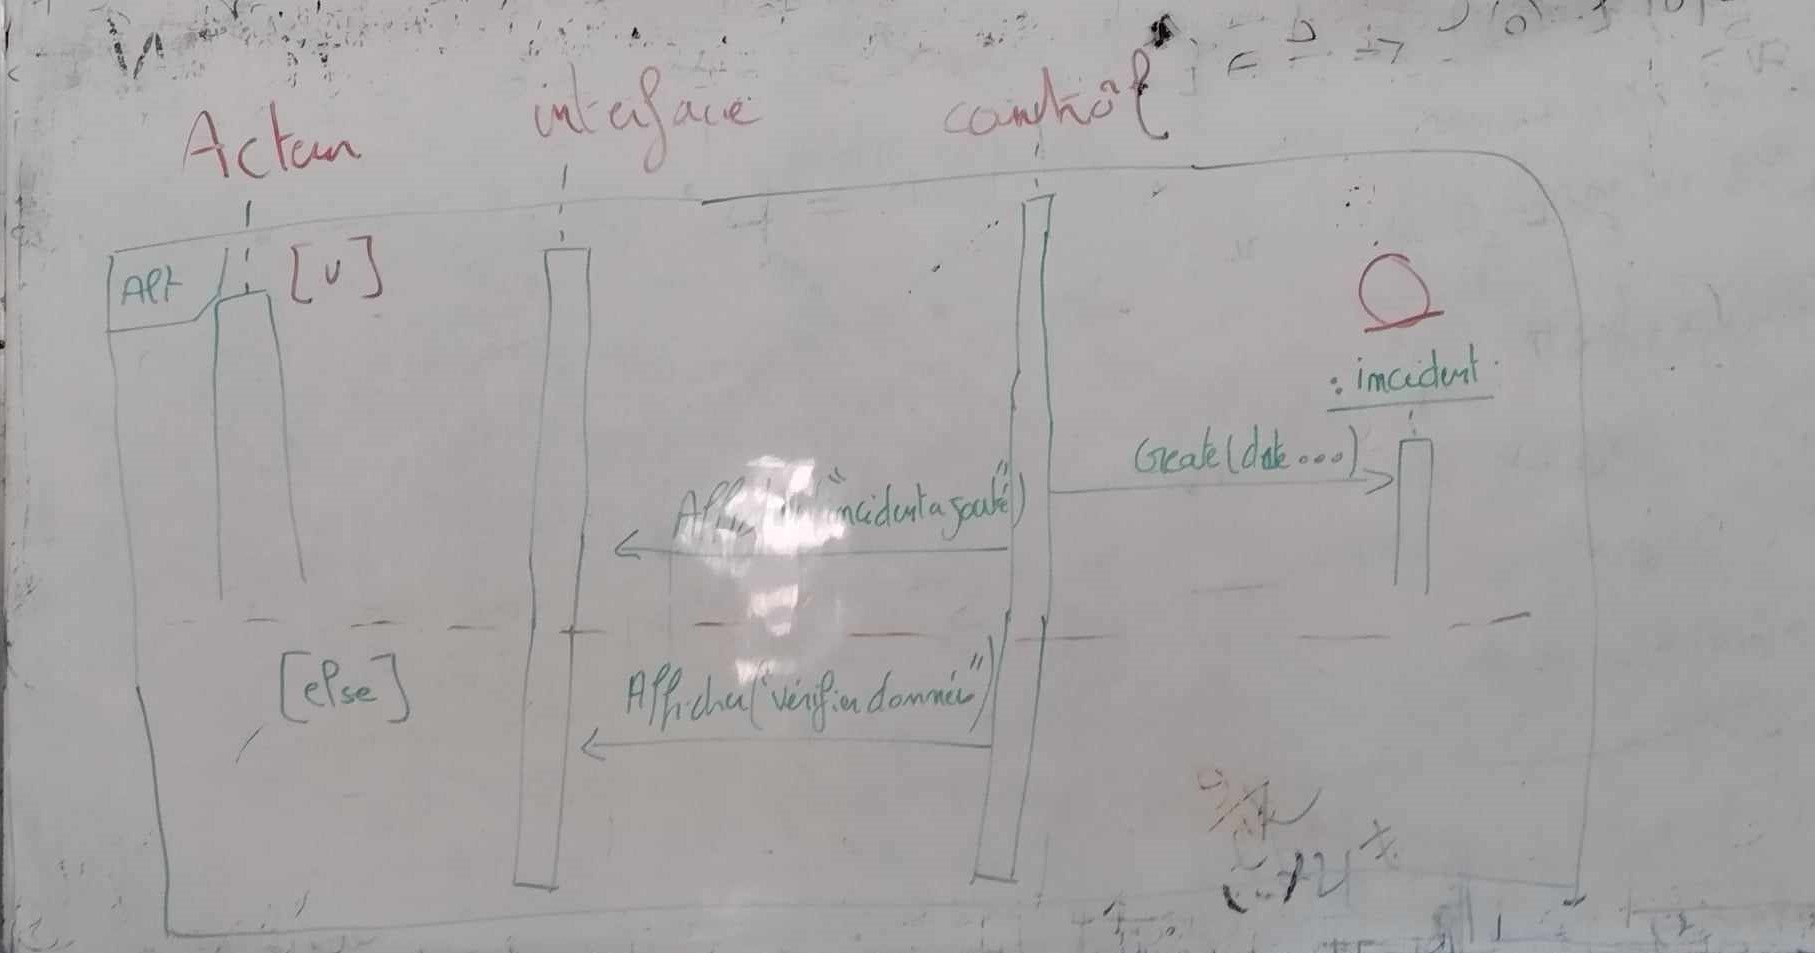 Acteur
interface
contrôl
Alt
[v]
: incident
Create(date...)
"incident ajouté")
[else]
Afficher("vérifier données")